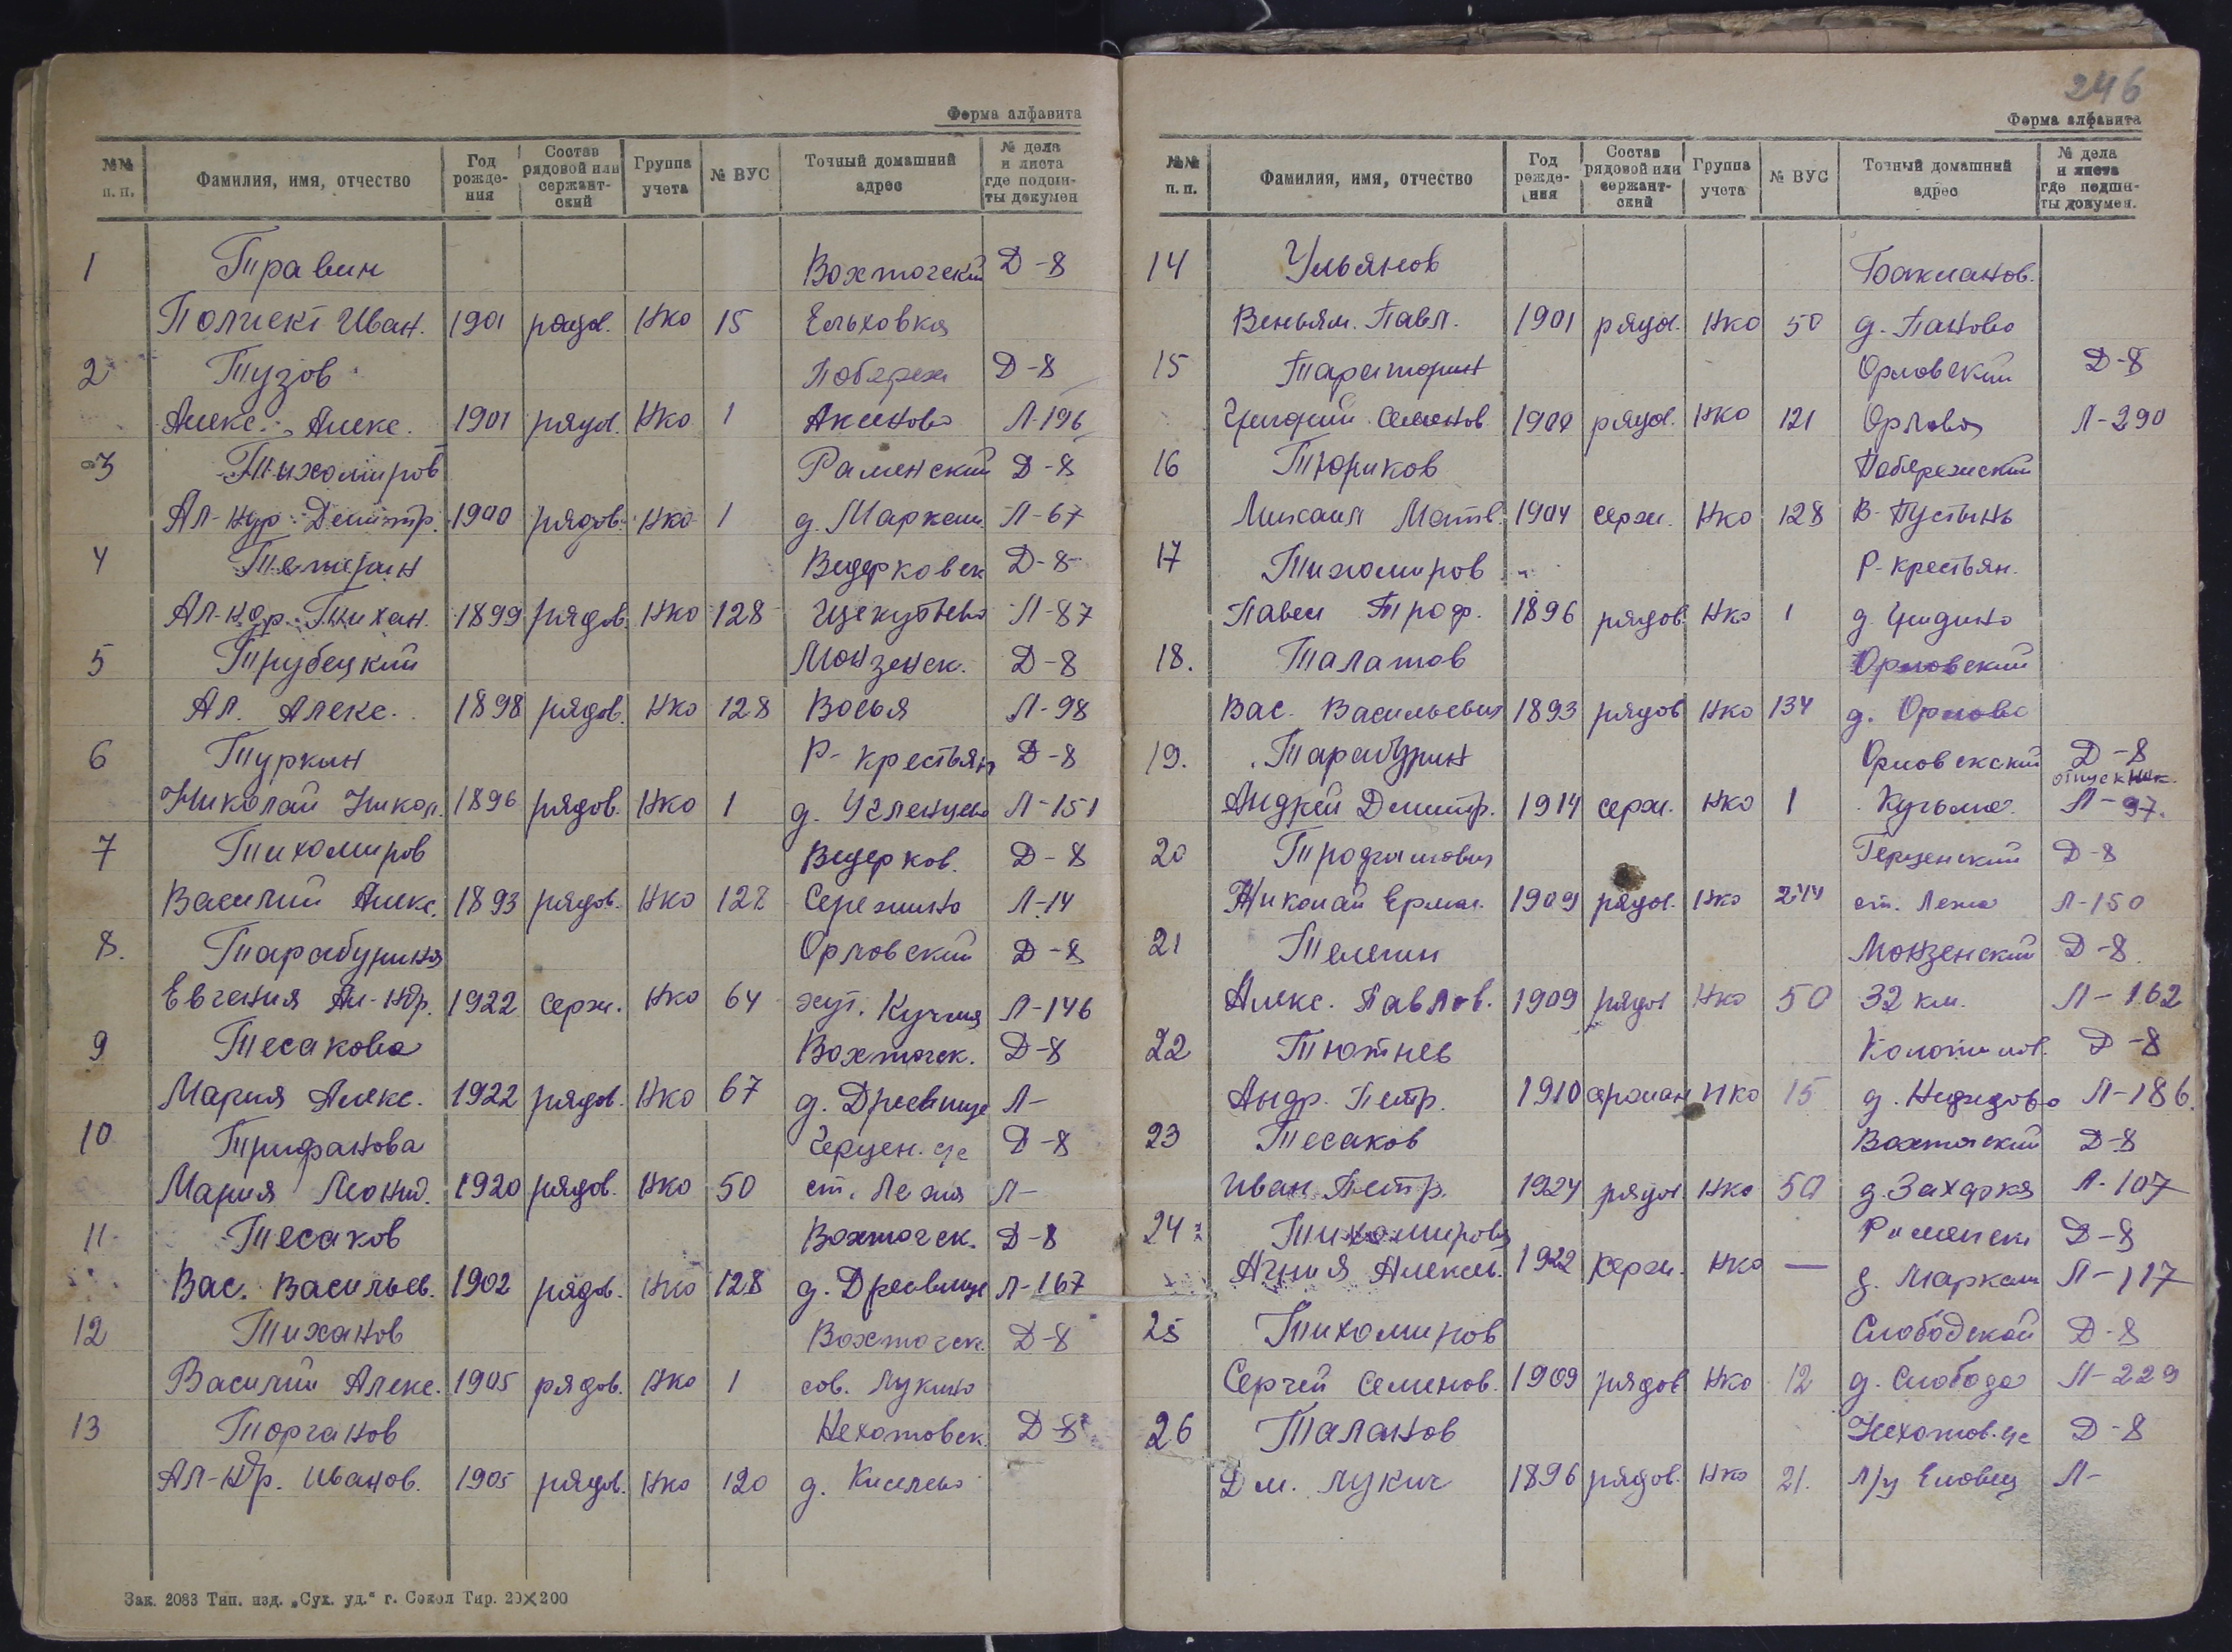 Форма алфавита
№№ п. п. Фамилия, имя, отчество Год рожде- ния Состав рядовой или сержант- ский Группа учета № ВУС Точный домашний адрес № дела и листа где подши- ты докумен
1 Травин Вохтогский Д-8
Полиект Иван. 1901 рядов. Нко 15 Ельховка
2 Тузов Побереж Д-8
Алекс. Алекс. 1901 рядов. Нко 1 Аксеново Л-196
3 Тихомиров Раменский Д-8
Ал-ндр Дмитр. 1900 рядов. Нко 1 д. Маркелы Л-67
4 Тетерин Ведерковск Д-8
Ал-ндр. Тихан. 1899 рядов. Нко 128 Л-87
5 Трубецкий Монзенск. Д-8
Ал. Алекс. 1898 рядов. Нко 128 Восья Л-98
6 Туркин Р-Крестьян Д-8
Николай Никол. 1896 рядов. Нко 1 д. Л-151
7 Тихомиров Ведерков. Д-8
Василий Алекс. 1893 рядов. Нко 128 Сережино Л-14
8. Тарабурина Орловский Д-8
Евгения Ал-ндр. 1922 серж. Нко 64 хут. Л-146
9 Тесакова Вохтогск. Д-8
Мария Алекс. 1922 рядов. Нко 67 д. Дресвище Л-
10 Трифанова Герцен. Д-8
Мария Леонид. 1920 рядов. Нко 50 ст. Лежа Л-
11 Тесаков Вохтогск. Д-8
Вас. Васильев. 1902 рядов. Нко 128 д. Дресвище Л-167
12 Тиханов Вохтогск. Д-8
Василий Алекс. 1905 рядов. Нко 1 сов. Лукино
13 Торганов Нехотовск. Д-8
Ал-ндр. Иванов. 1905 рядов. Нко 120 д. Киселево
Зак. 2083 Тип. изд. „Сух. уд.“ г. Сокол Тир. 20×200
246
Форма алфавита
№№ п. п. Фамилия, имя, отчество Год рожде- ния Состав рядовой или сержант- ский Группа учета № ВУС Точный домашний адрес № дела и листа где подши- ты докумен.
14 Ульянов Бакланов.
Веньям. Павл. 1901 рядов. Нко 50 д. Паново
15 Орловский Д-8
Григорий Семенов 1900 рядов. Нко 121 Орлово Л-290
16 Тюриков Побережский
Михаил Матв. 1904 серж. Нко 128 В-Пустынь
17 Тихомиров Р-крестьян.
Павел Троф. 1896 рядов. Нко 1 д.
18. Талатов Орловский
Вас. Васильевич 1893 рядов Нко 134 д. Орлово
19. Тарабурин Орловский Д-8
отпускник.
Андрей Дмитр. 1914 серж. Нко 1 Л-97.
20 Герценский Д-8
Николай Ермол. 1909 рядов. Нко 244 ст. Лежа Л-150
21 Телегин Монзенский Д-8.
Алекс. Павлов. 1909 рядов Нко 50 32 км. Л-162
22 Тютнев Д-8
Андр. Петр. 1910 Нко 15 д. Нефедово Л-186.
23 Тесаков Вохтогский Д-8
Иван Петр. 1924 рядов. Нко 50 д. Захарка Л-107
24 Тихомирова Раменск Д-8
Агния Алексеев. 1922 серж. Нко — д. Маркелы Л-117
25 Тихомиров Слободской Д-8
Сергей Семенов. 1909 рядов Нко 12 д. Слобода Л-229
26 Таланов Нехотов. Д-8
Дм. Лукич 1896 рядов. Нко 21. л/у Еловец Л-